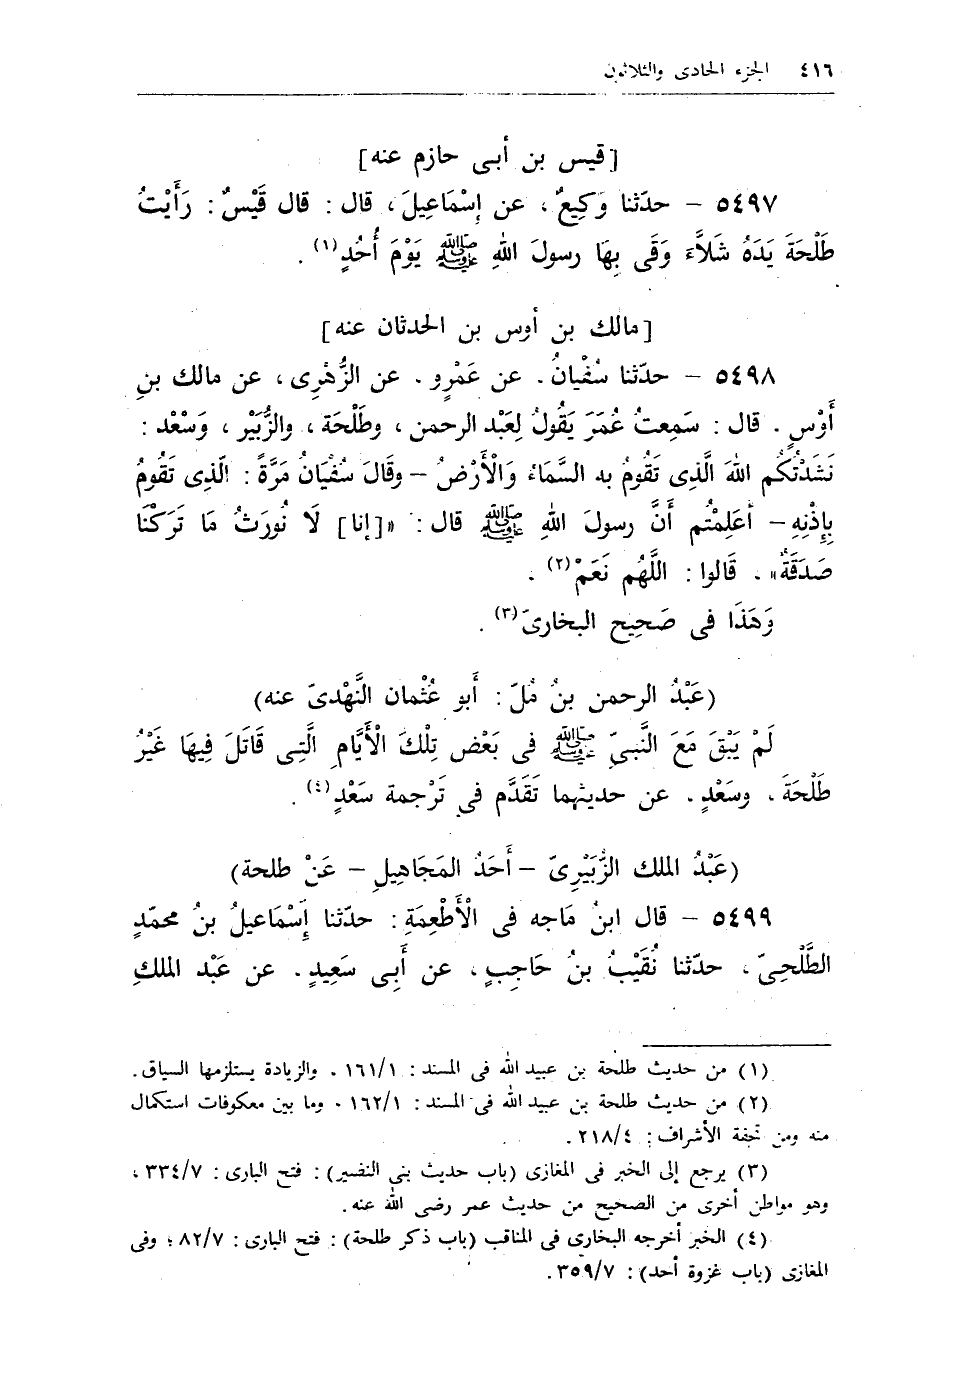 ٤١٦ الجزء الحادى والثلاثون
[قيس بن أبى حازم عنه]
٥٤٩٧ – حدّثنا وَكِيعٌ، عن إِسْمَاعِيلَ، قال : قال قَيْسٌ : رَأَيْتُ
طَلْحَةَ يَدَهُ شَلاَّءَ وَقَى بِهَا رسولَ اللهِ ﷺ يَوْمَ أُحُدٍ(١) .
[مالك بن أوس بن الحدثان عنه]
٥٤٩٨ – حدّثنا سُفْيانُ. عن عَمْرٍو. عن الزُّهْرِى، عن مالك بنِ
أَوْسٍ. قال : سَمِعتُ عُمَرَ يَقُولُ لِعَبْد الرحمن، وطَلْحَة، والزُّبَيْر، وَسَعْد :
نَشَدْتُكُم اللهَ الَّذِى تَقُومُ به السَّمَاءُ وَالْأَرْضُ – وقَالَ سُفْيَانُ مَرَّةً : الّذِى تَقُومُ
بِإِذْنِهِ – أعَلِمْتُم أَنَّ رسولَ اللهِ ﷺ قال : «[إنا] لَا نُورَثُ مَا تَرَكْنَا
صَدَقَةٌ». قَالوا : اللَّهُم نَعَمْ(٢) .
وَهَذَا فى صَحِيح البخارىّ(٣) .
(عَبْدُ الرحمن بنُ مُلّ : أَبو عُثْمان النَّهْدىّ عنه)
لَمْ يَبْقَ مَعَ النَّبىِّ ﷺ فى بَعْض تِلْكَ الْأَيَّامِ الَّتِى قَاتَلَ فِيهَا غَيْرُ
طَلْحَةَ، وسَعْدٍ. عن حديثهما تَقَدَّم فى تَرْجمة سَعْدٍ(٤) .
(عَبْدُ الملك الزُّبَيْرِىّ – أَحَدُ المَجَاهِيلِ – عَنْ طلحة)
٥٤٩٩ – قال ابنُ مَاجه فى الْأَطْعِمَةِ : حدّثنا إِسْمَاعيلُ بنُ محمّدٍ
الطَّلْحِىّ، حدّثنا نُقَيْبُ بنُ حَاجِبٍ، عن أَبِى سَعِيدٍ. عن عَبْد الملكِ
(١) من حديث طلحة بن عبيد الله فى المسند : ١٦١/١ . والزيادة يستلزمها السياق.
(٢) من حديث طلحة بن عبيد الله فى المسند : ١٦٢/١ . وما بين معكوفات استكمال
منه ومن تحفة الأشراف : ٢١٨/٤.
(٣) يرجع إلى الخبر فى المغازى (باب حديث بنى النضير) : فتح البارى : ٣٣٤/٧ ،
وهو مواطن أخرى من الصحيح من حديث عمر رضى الله عنه.
(٤) الخبر أخرجه البخارى فى المناقب (باب ذكر طلحة) : فتح البارى : ٨٢/٧ ؛ وفى
المغازى (باب غزوة أحد) : ٣٥٩/٧.